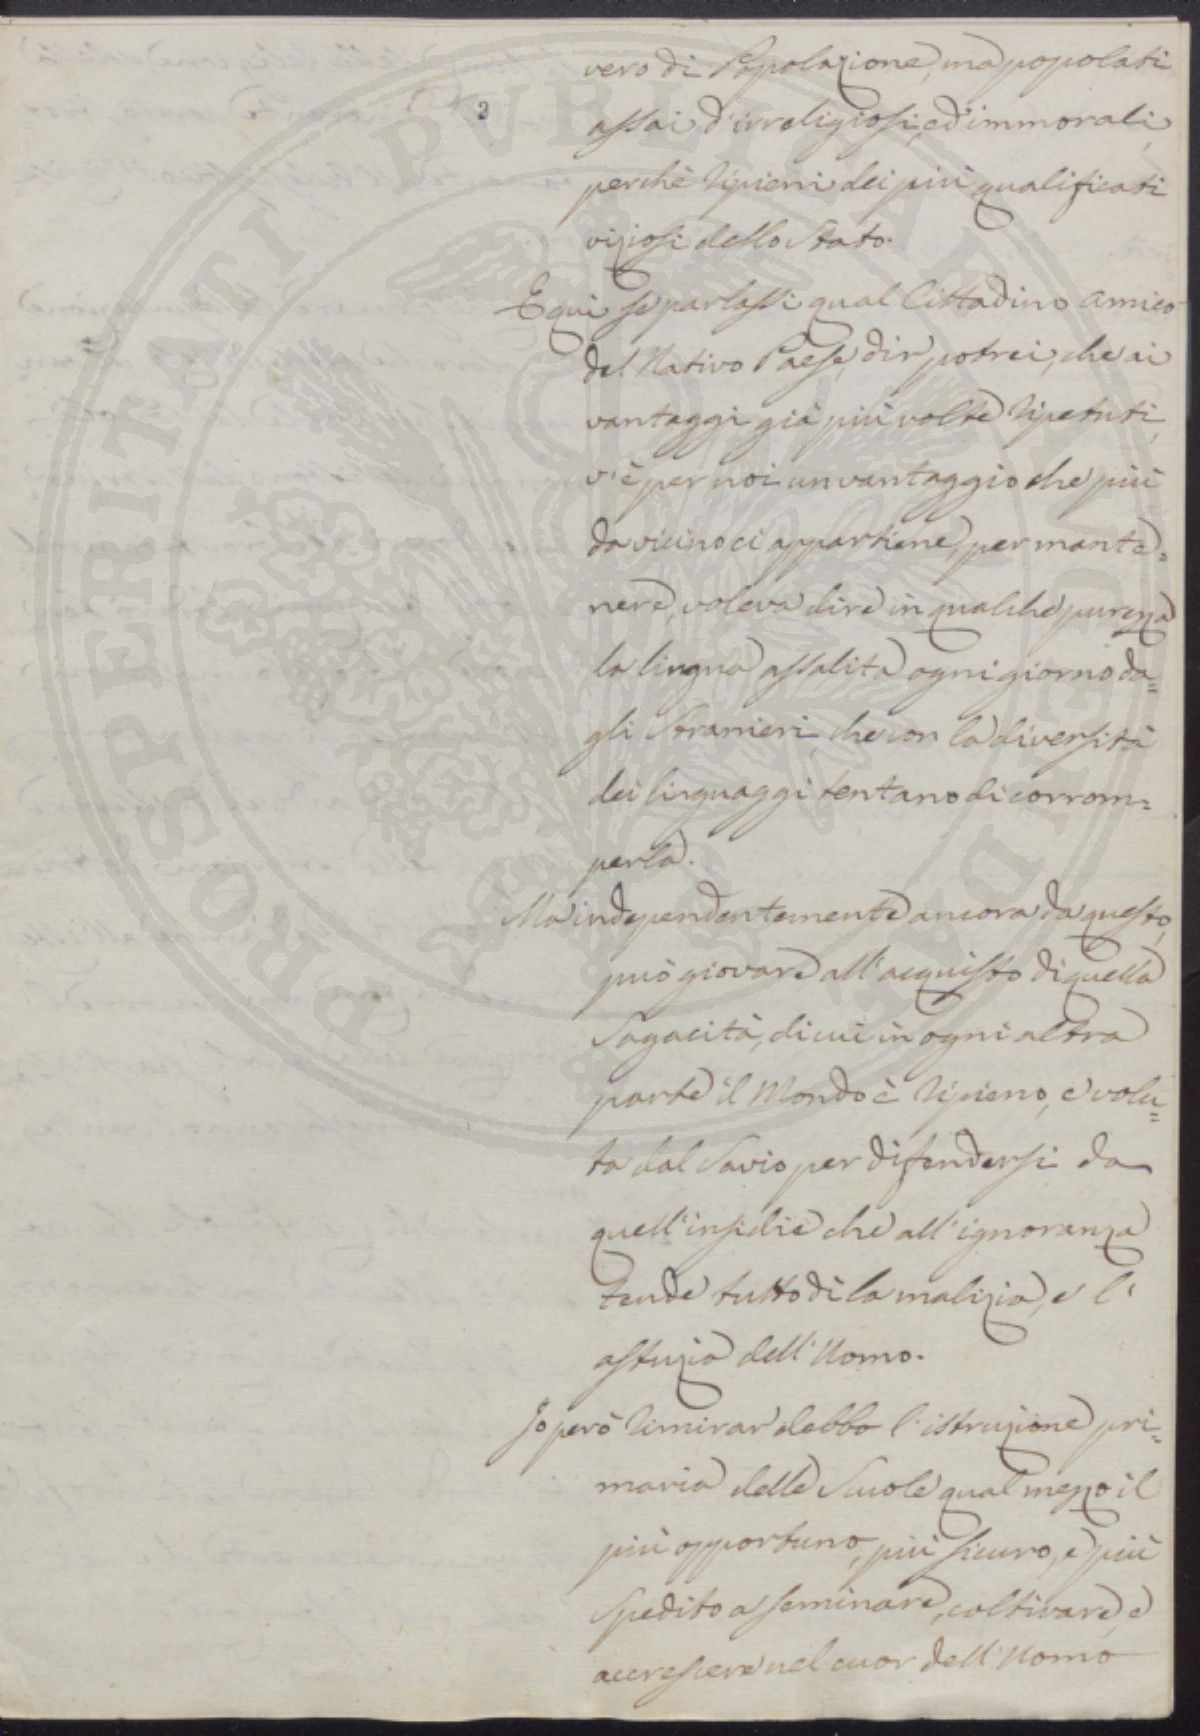 vero di Popolazione, ma popolati
3
assai d'irreligiosi, ed immorali,
perchè ripieni dei più qualificati
viziosi dello Stato.
E qui se parlassi qual Cittadino amico
del Nativo Paese, dir potrei, che ai
vantaggi già più volte ripetuti,
v'è per noi un vantaggio che più
da vicino ci appartiene, per mante=
nere, voleva dire in qualche purezza
la lingua assalita ogni giorno da=
gli Stranieri, che con la diversità
dei linguaggi tentano di corrom=
perla.
Ma independentemente ancora da questo,
può giovare all'acquisto di quella
Sagacità, di cui in ogni altra
parte il Mondo è ripieno, e volu=
ta dal Savio per difendersi da
quell'insidie che all'ignoranza
tende tutto dì la malizia, e l'
astuzia dell'Uomo.
Io però rimirar debbo l'istruzione pri=
maria delle Scuole qual mezzo il
più opportuno, più sicuro, e più
Spedito a seminare, coltivare, e
accrescere nel cuor dell'Uomo
PROSPERITATI PVBLICAE AVGENDAE